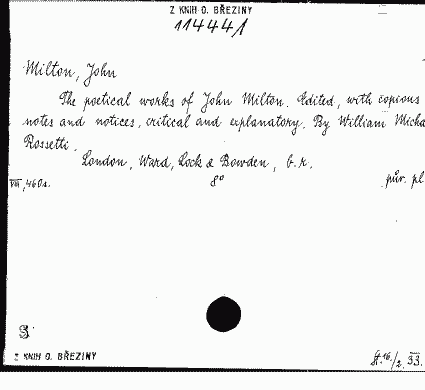 Z KNIH O. BŘEZINY
114441
Milton, John
The poetical works of John Milton. Edited, with copious
notes and notices, critical and explanatory. By William Micha
Rossetti.
London, Ward, Lock & Bowden, b.r.
VIII, 460s. 8° pův. pl
S
Z KNIH O. BŘEZINY